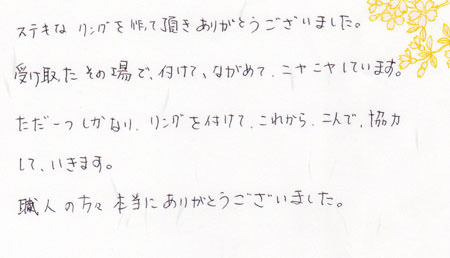 ステキな リングを作って頂きありがとうございました。
受け取ったその場で、付けて、ながめて、ニヤニヤしています。
ただ一つしかない、リングを付けて、これから、二人で、協力
して、いきます。
職人の方々本当にありがとうございました。